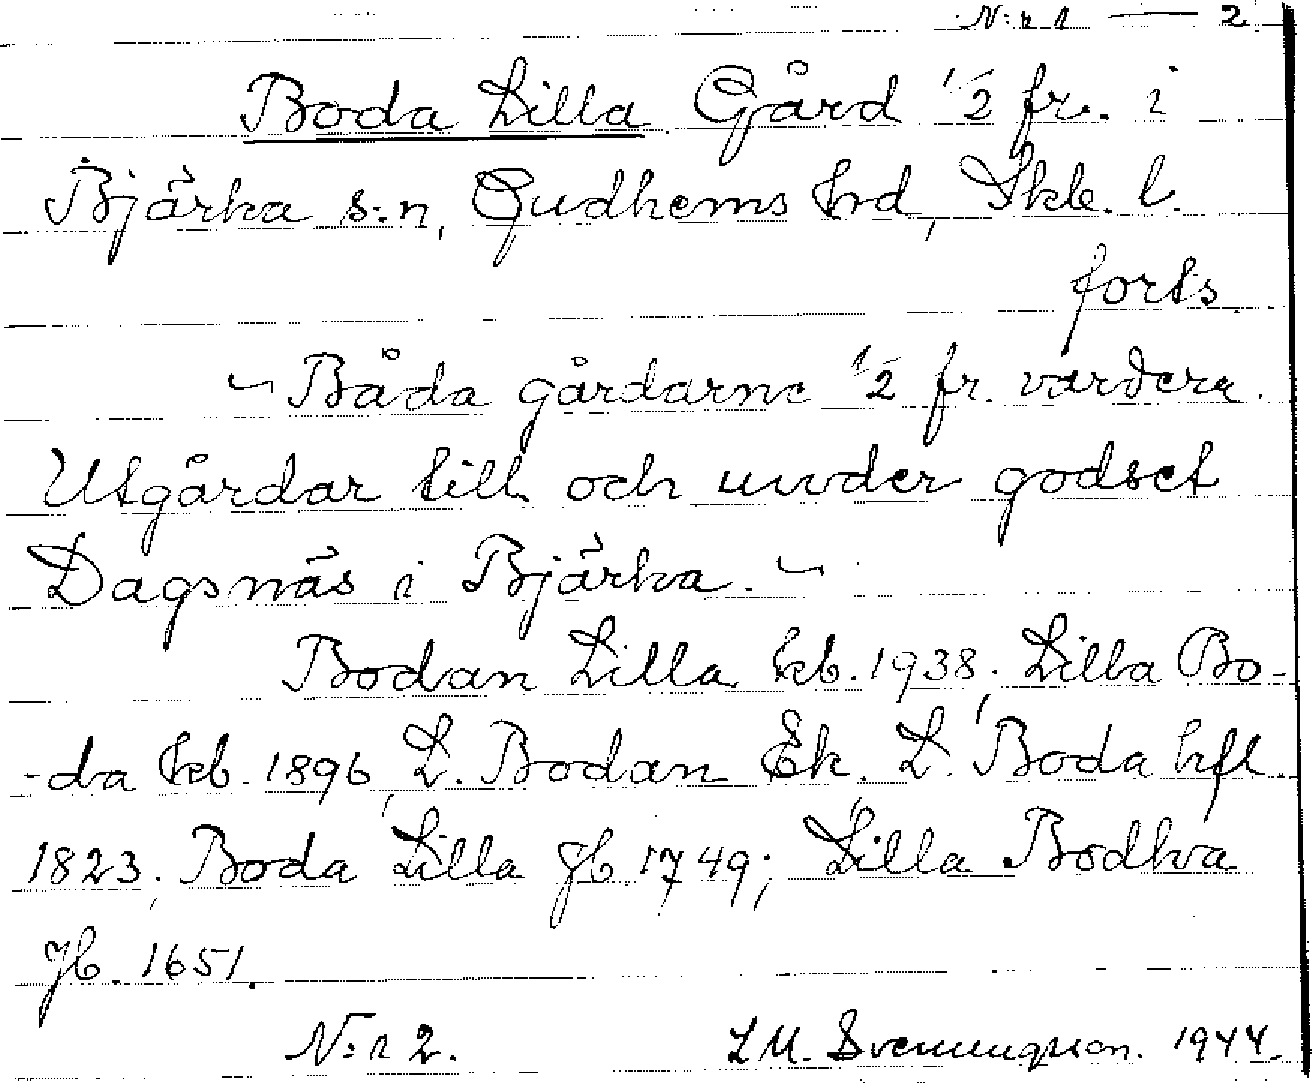 N:r 1 — 2
Boda Lilla Gård 1/2 fr. i
Bjärka s:n, Gudhems hrd, Skb. l.
forts.
~ Båda gårdarne 1/2 fr. vardera.
Utgårdar till och under godset
Dagsnäs i Bjärka. ~
Bodan Lilla kb. 1938; Lilla Bo-
-da kb. 1896, L. Bodan Ek. L. Boda hfl
1823, Boda Lilla Jb 1749; Lilla Bodha
Jb. 1651.
N:r 2. L M. Svenungsson. 1944.